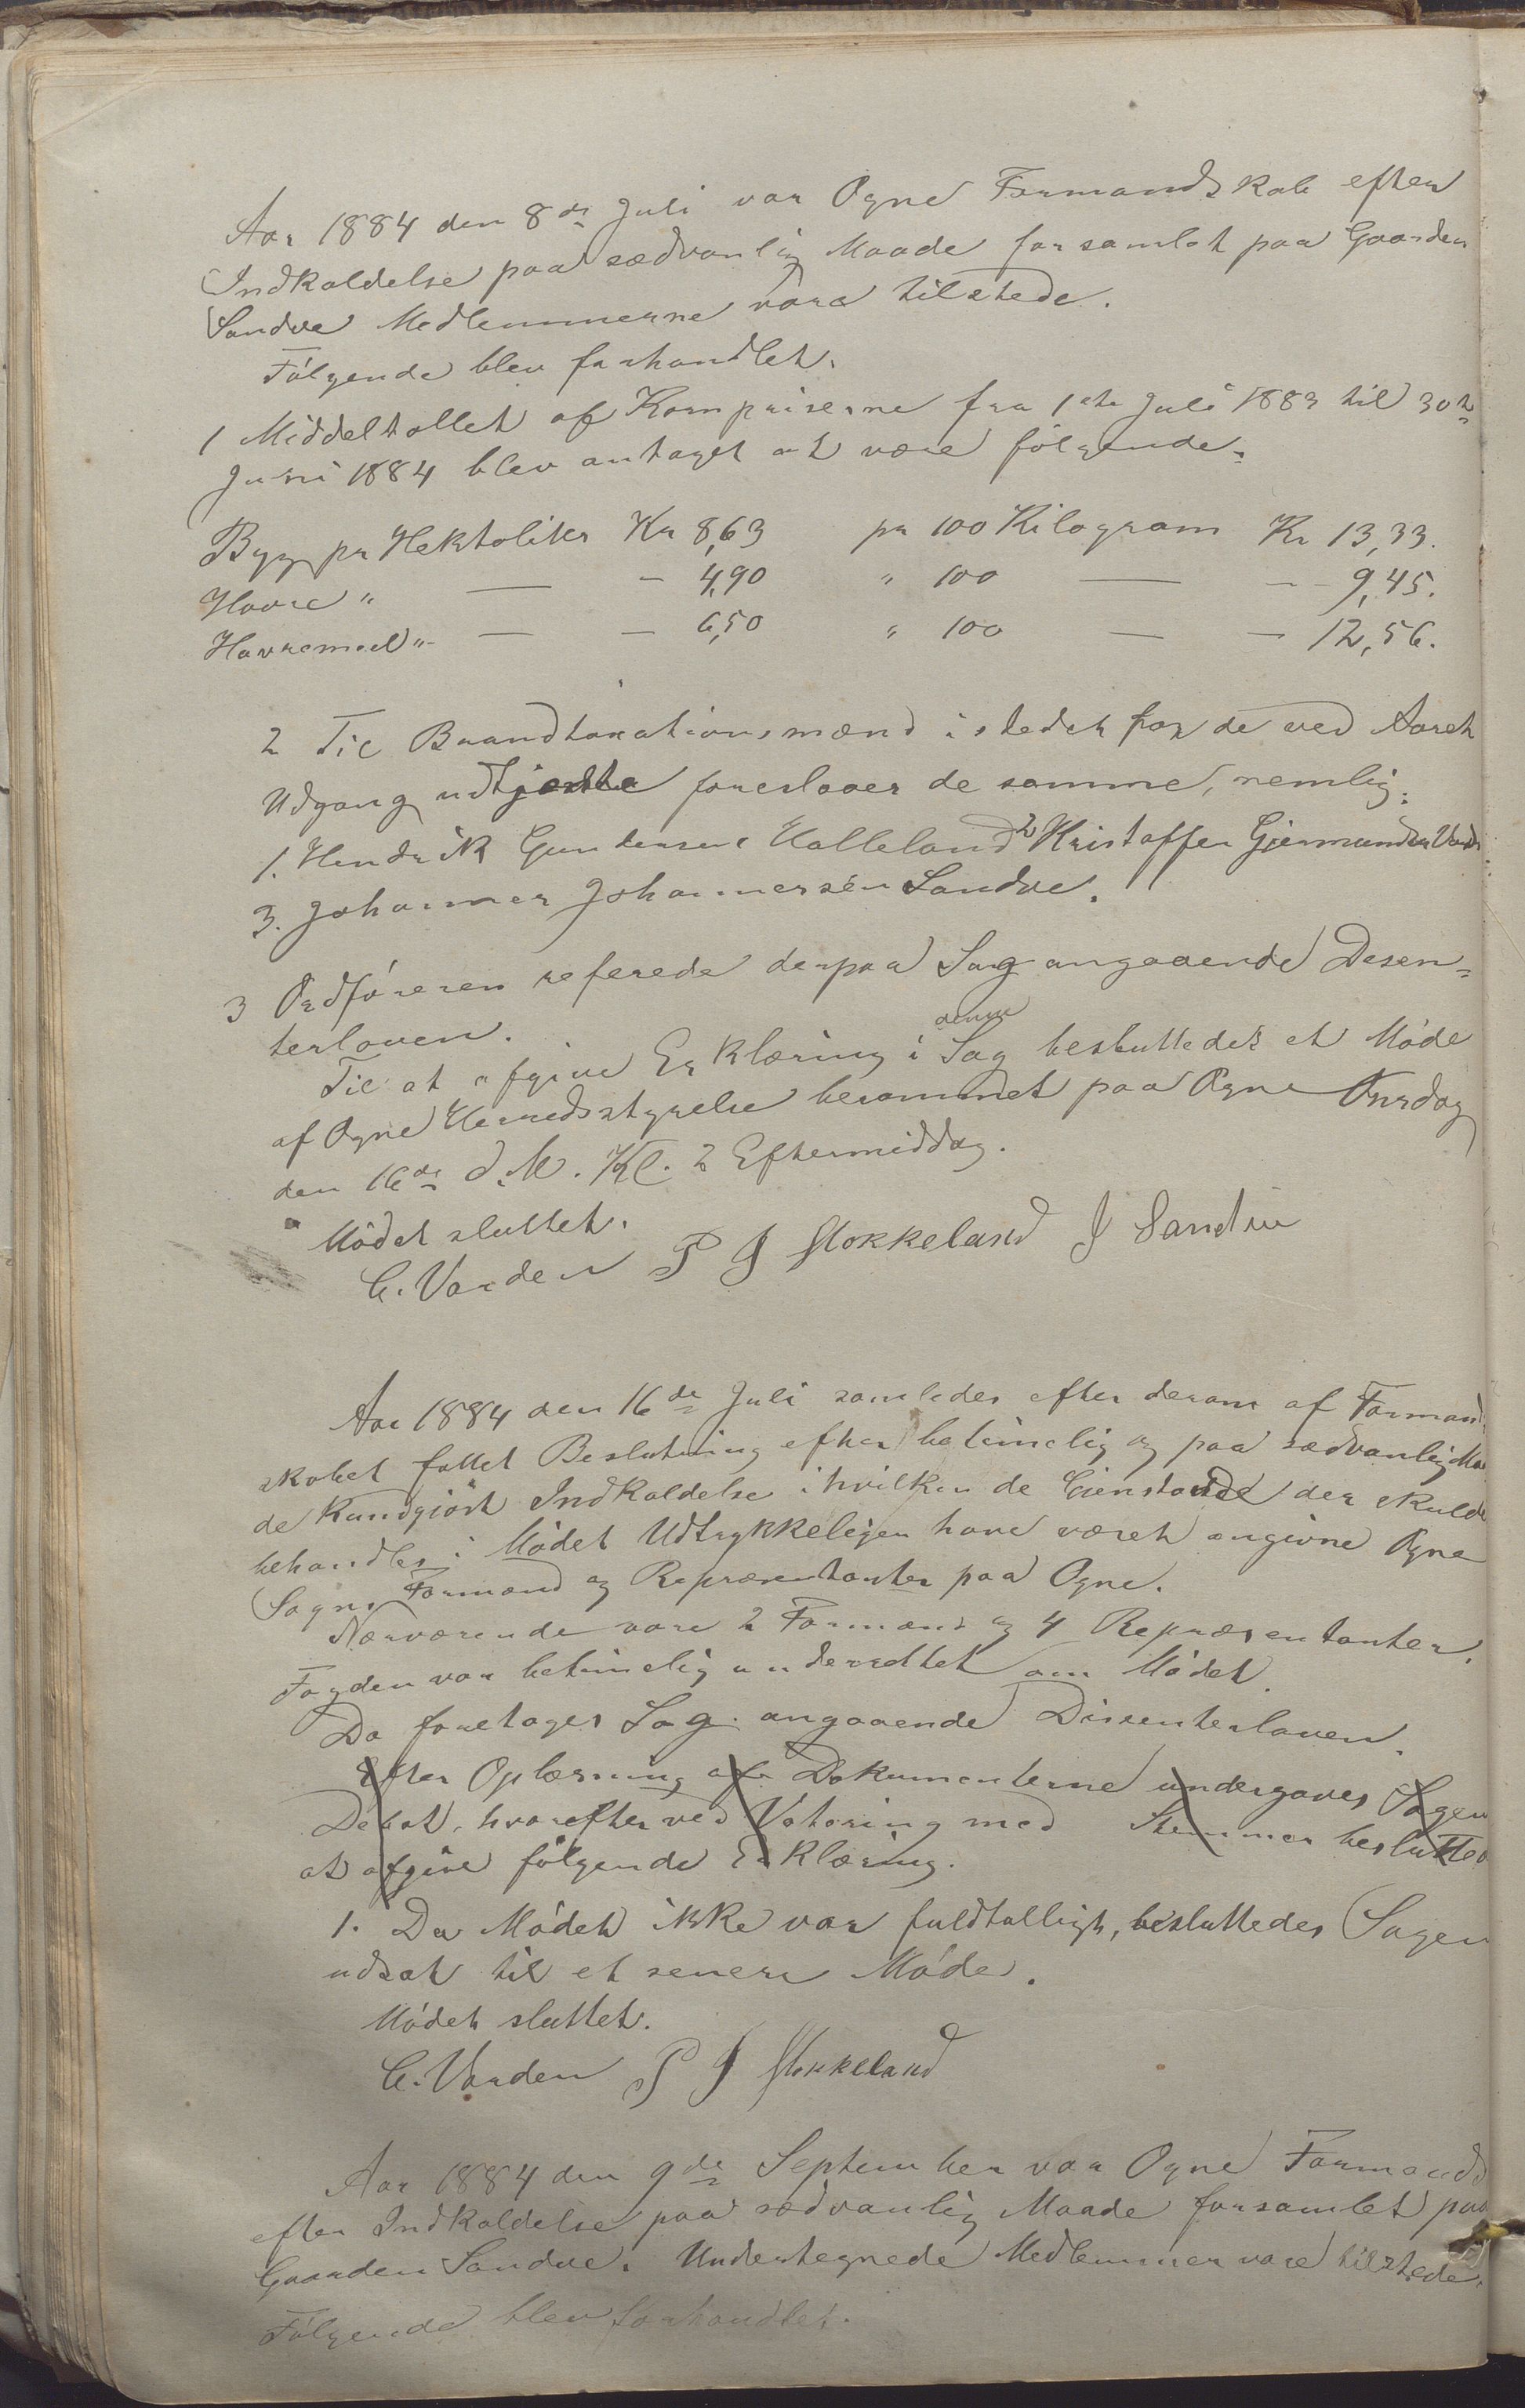 Aar 1884 den 8de Juli var Ogne Formandskab efter
Indkaldelse paa sædvanlig Maade forsamlet paa Gaarden
Sandve Medlemmerne vare tilstede.
Følgende blev forhandlet.
1 Middeltallet af Kornpriserne fra 1ste Juli 1883 til 30te
Juni 1884 blev antaget at være følgende:
Byg pr Hektoliter Kr 8,63 pr 100 Kilogram Kr 13,33.
Havre " — - 4,90 " 100 — - 9,45.
Havremeel " — - 6,50 " 100 — - 12,56.
2 Til Brandtaxationsmænd istedet for de ved Aaret
Udgang udtjente foreslaaes de samme, nemlig:
1. Hendrik Gundersen Halleland 2 Kristoffer Gjermundsen
3. Johannes Johannessen Sandve.
3 Ordføreren referede derpaa Sag angaaende Desen-
terloven.
Til at afgive Erklæring i denne Sag besluttedes et Møde
af Ogne Herredsstyrelse berammet paa Ogne Onsdag
den 16de d.M. Kl. 2 Eftermiddag.
Mødet sluttet.
C. Varden P J Stokkeland J Sandve
Aar 1884 den 16de Juli samledes efter derom af Formand-
skabet fattet Beslutning efter betimelig og paa sædvanlig Maa
de Kundgjort Indkaldelse i hvilken de Gienstande der skulde
behandles i Mødet Udtrykkeligen have været angivne Ogne
Sogns Formænd og Repræsentanter paa Ogne.
Nærværende vare 2 Formænd og 4 Repræsentanter.
Fogden var betimelig underrettet om Mødet.
Da foretages Sag angaaende Dissenterloven.
Efter Oplæsning af Dokumenterne undergaves Sagen
Debat, hvorefter ved Votering med Stemmer besluttes
at afgive følgende Erklæring.
1. Da Mødet ikke var fuldtalligt, besluttedes Sagen
udsat til et senere Møde.
Mødet sluttet.
C. Varden P J Stokkeland
Aar 1884 den 9de September var Ogne Formands
efter Indkaldelse paa sædvanlig Maade forsamlet paa
Gaarden Sandve. Undertegnede Medlemmer vare tilstede.
Følgende blev forhandlet.